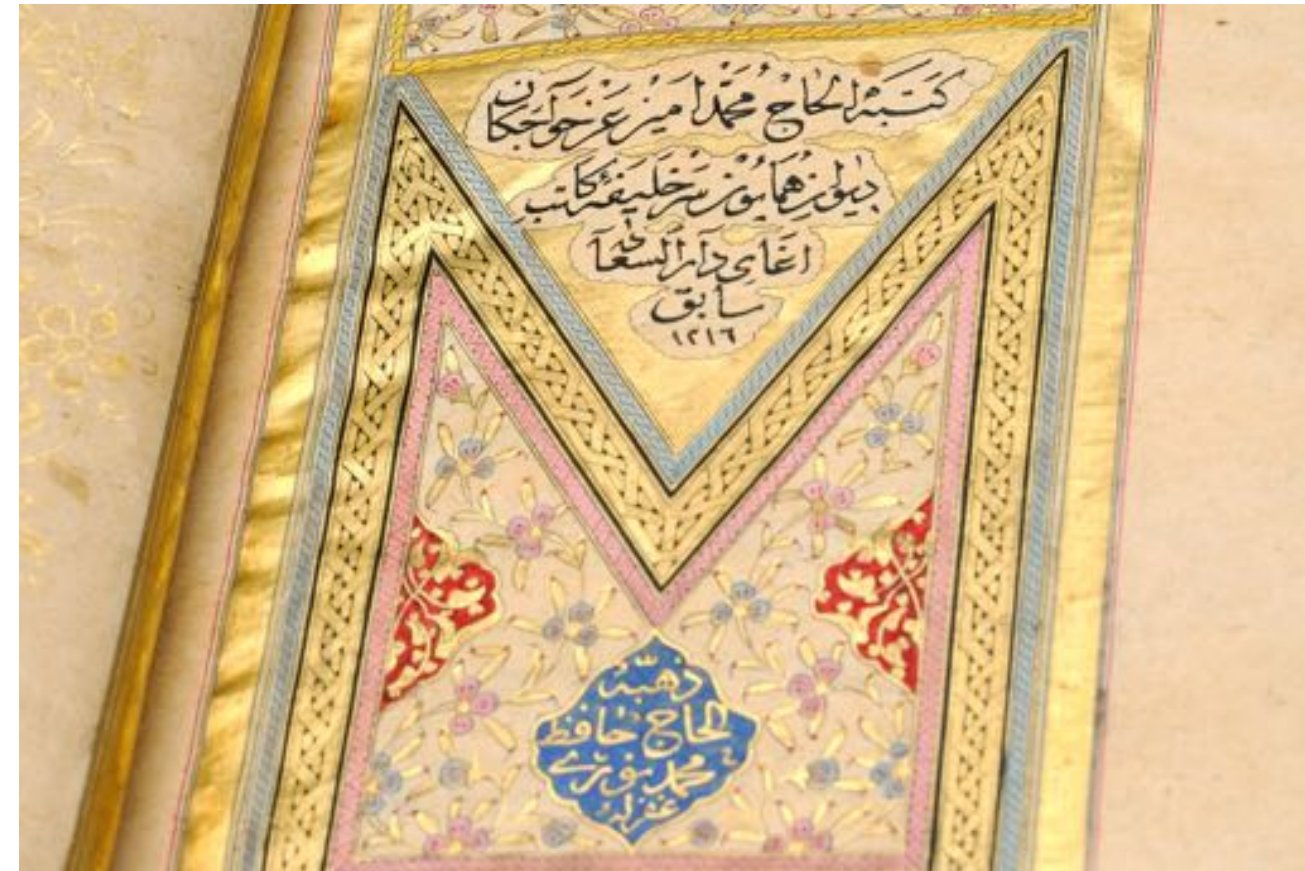 كتبه الحاج محمد امين عن خواجكان
ديوان همايون سرخليفۀ كاتب
اغاى دار السعاده
سابق
١٢١٦
ذهبه
الحاج حافظ
محمد نورى
غفر له